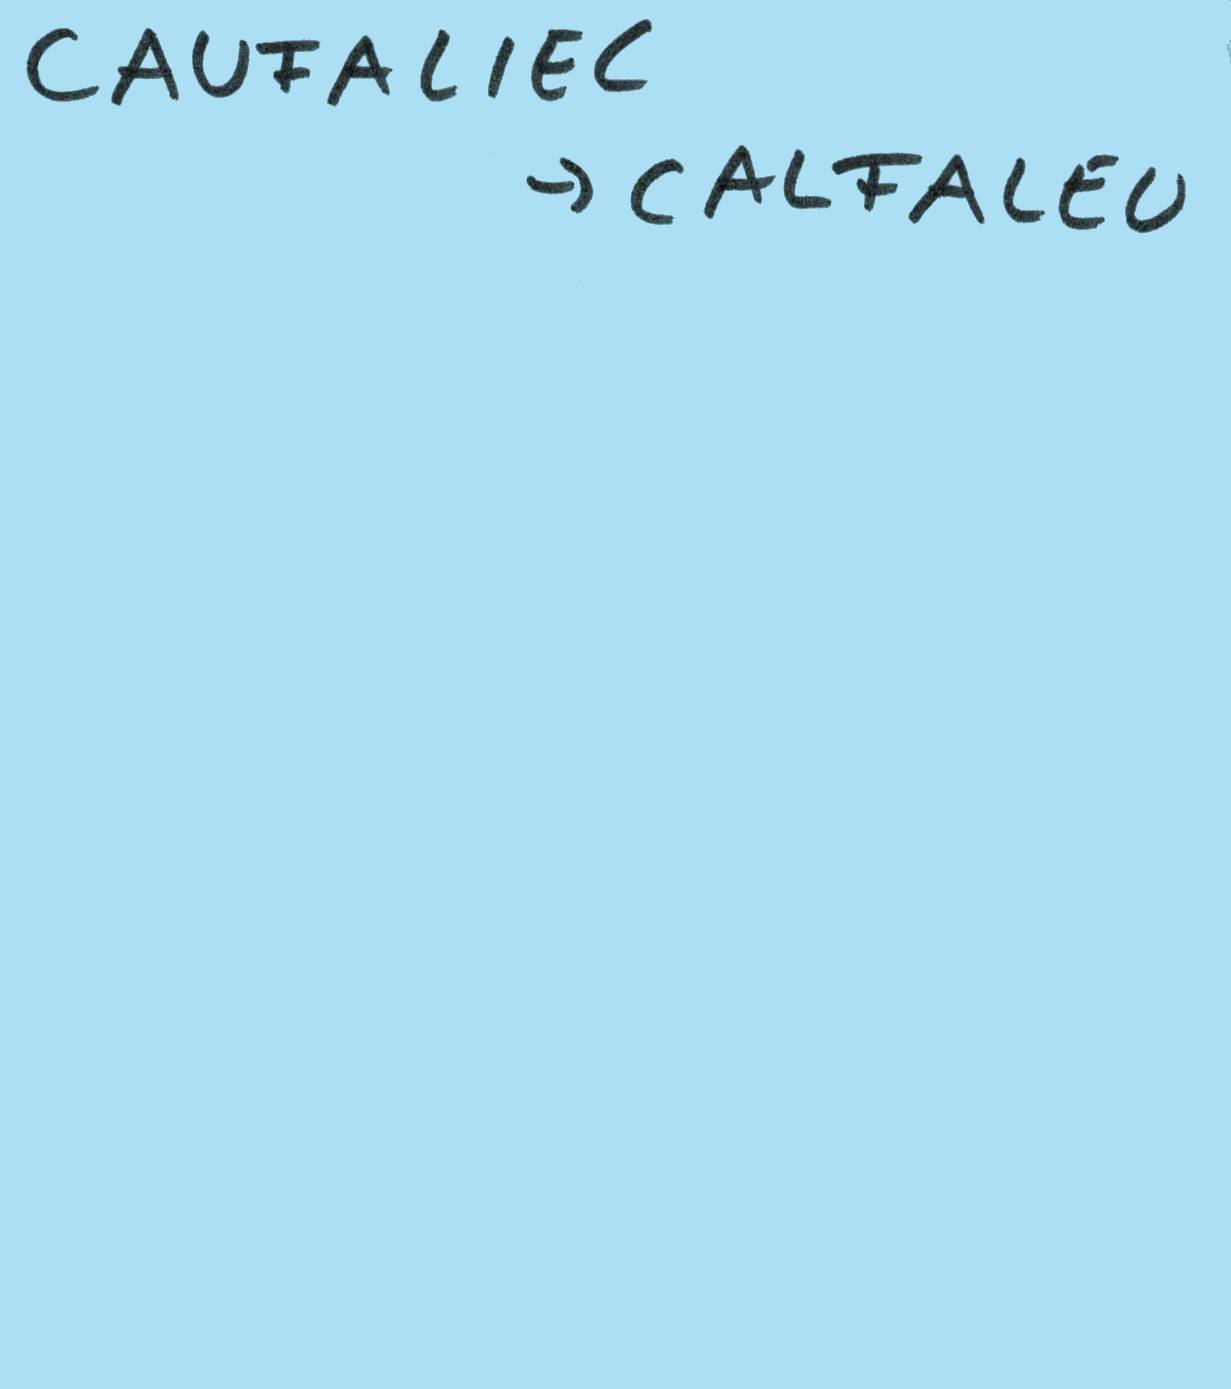 CAUFALIEC
→ CALFALEU